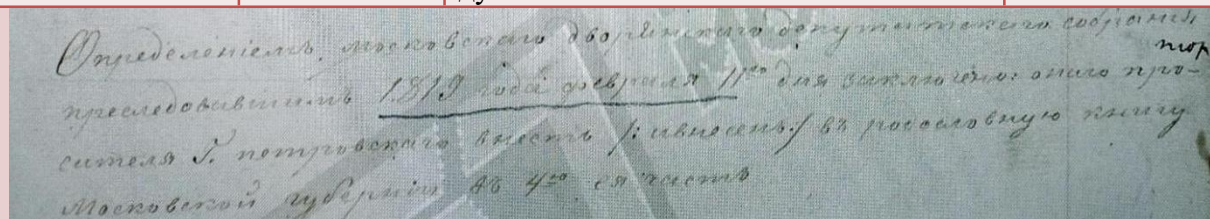 Определенiемъ московскаго дворянскаго депутатскаго собранiя
преследовавшимъ 1819 года февраля 11го дня заключено: онаго про-
сителя Г. петровскаго внесть /: и внесенъ :/ въ родословную книгу
Московской губернiи въ 4ю ея часть